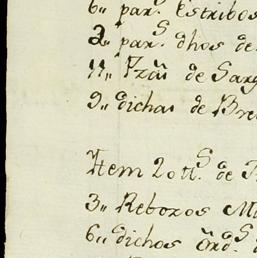 6,, par.s Estribos
2,, par.s dhos de
11,, de Sarg
9,, dichas de Bre
Item 20 tt.s de
3,, Rebozos
6,, dichos ōrd.s